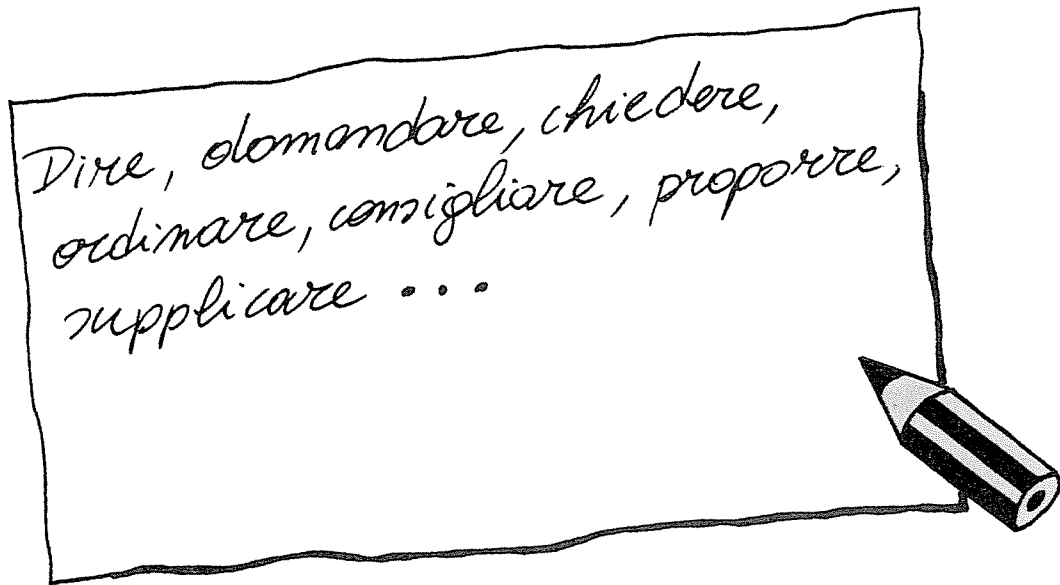 Dire, domandare, chiedere,
ordinare, consigliare, proporre,
supplicare ...